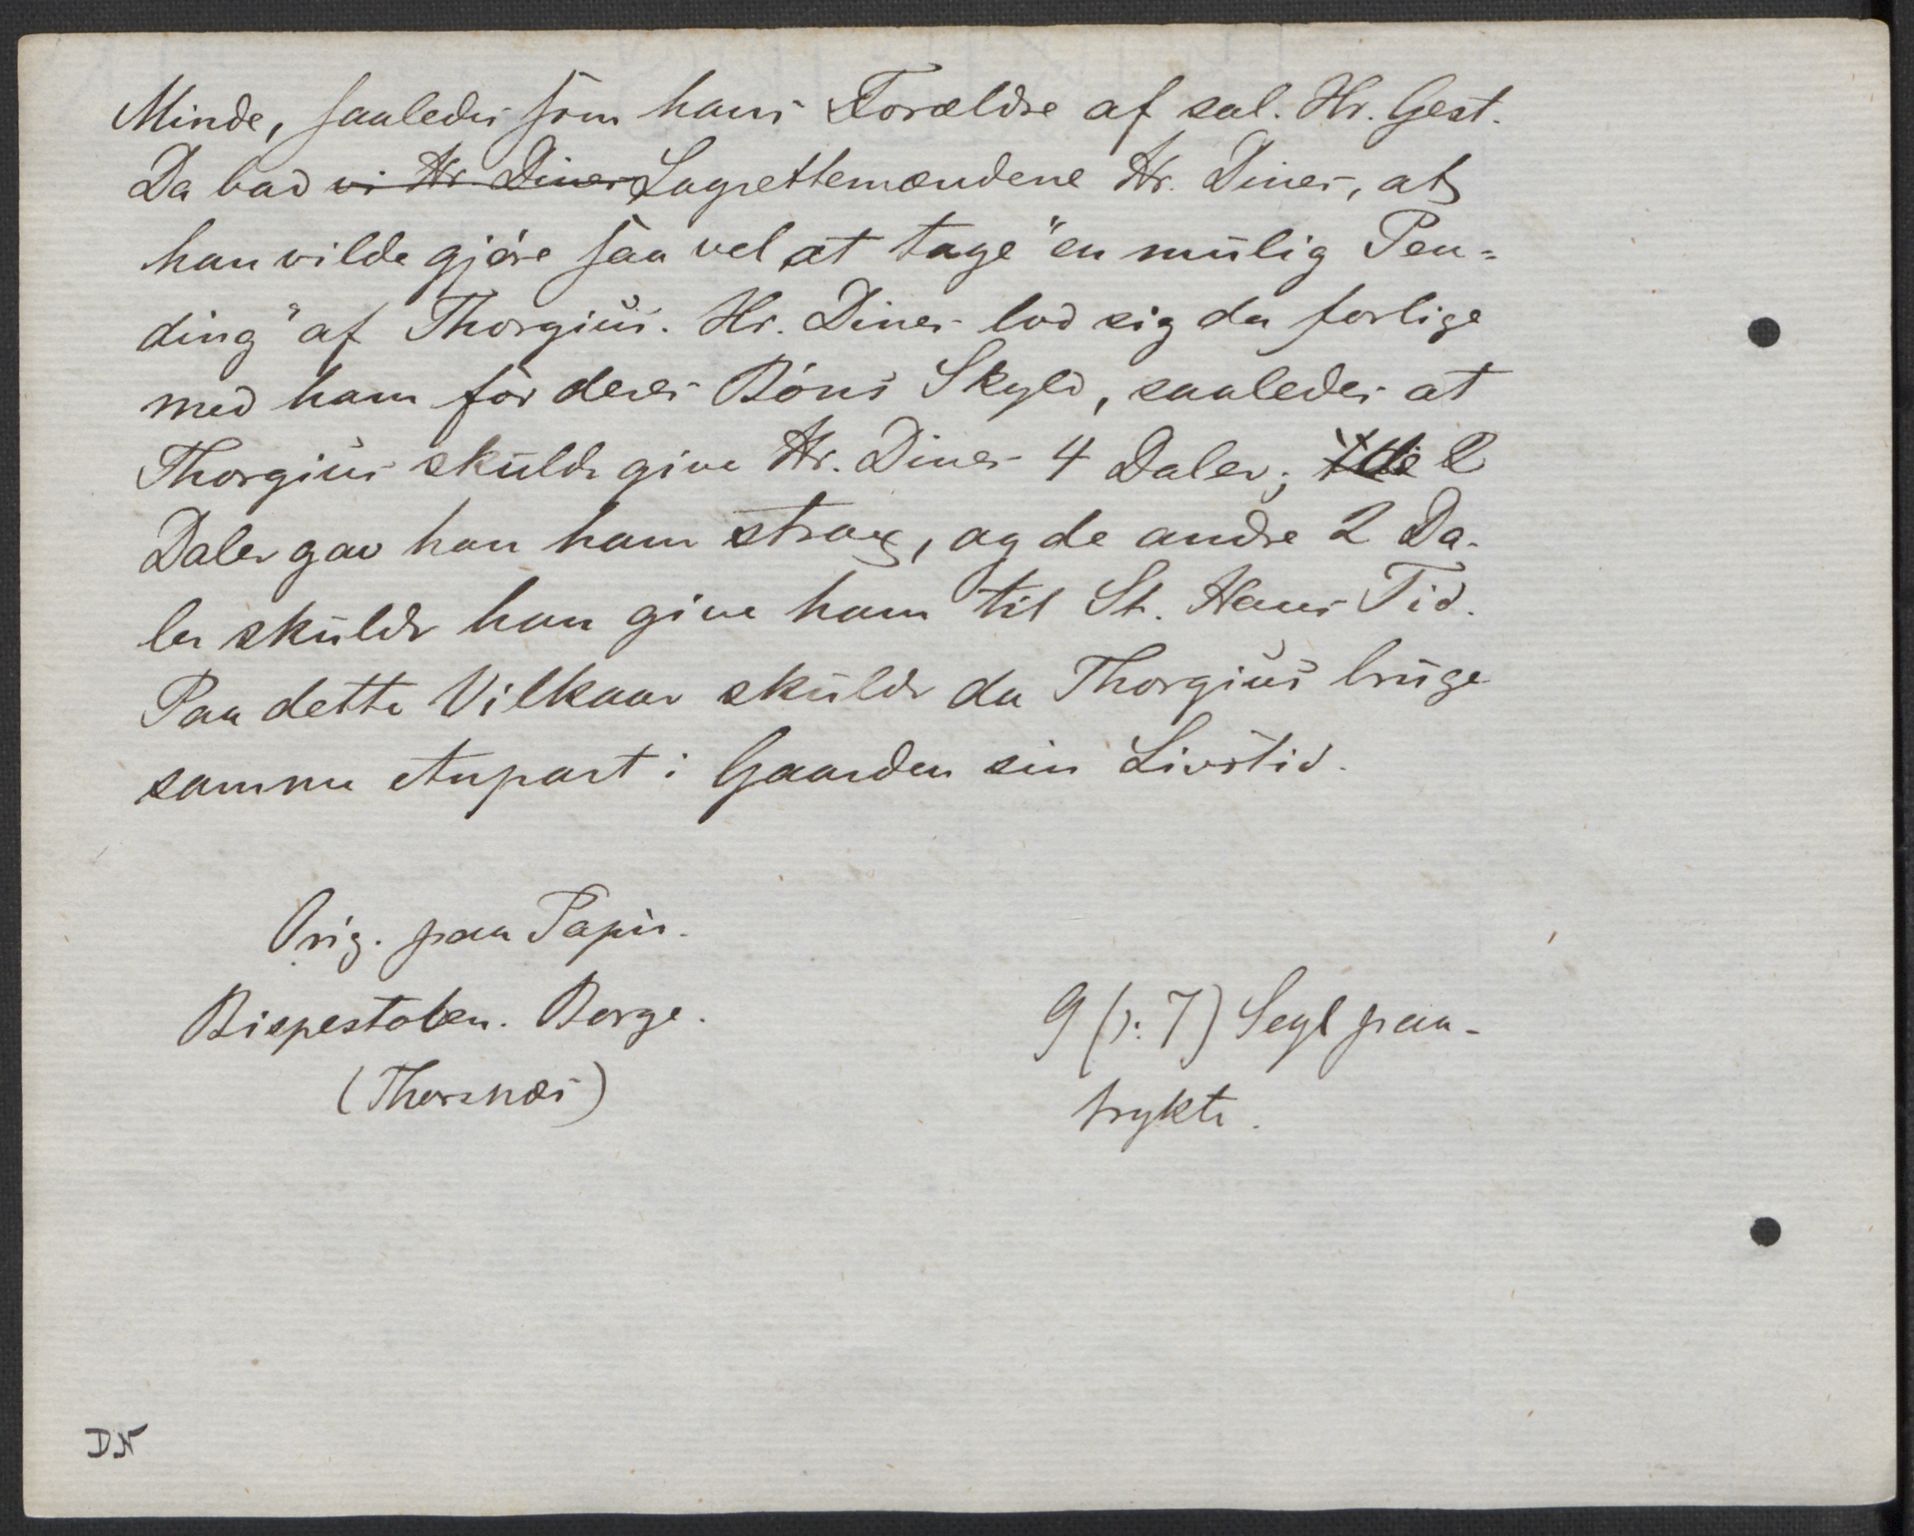 Minde, saaledes som hans Forældre af sal. Hr. Gest.
Da bad vi Hr. Dines Lagrettemændene Hr. Dines, at
han vilde gjøre saa vel at tage "en mulig Pen-
ding" af Thorgius. Hr. Dines lod sig da forlige
med ham for deres Bøns Skyld, saaledes at
Thorgius skulde give Hr. Dines 4 Daler; 2
Daler gav han ham strax, og de andre 2 Da-
ler skulde han give ham til St. Hans Tid.
Paa dette Vilkaar skulde da Thorgius bruge
samme Anpart i Gaarden sin Livstid.
Orig. paa Papir.
Bispestolen. Borge.
(Thorsnæs)
9 (ɔ: 7) Segl paa-
trykte.
DN